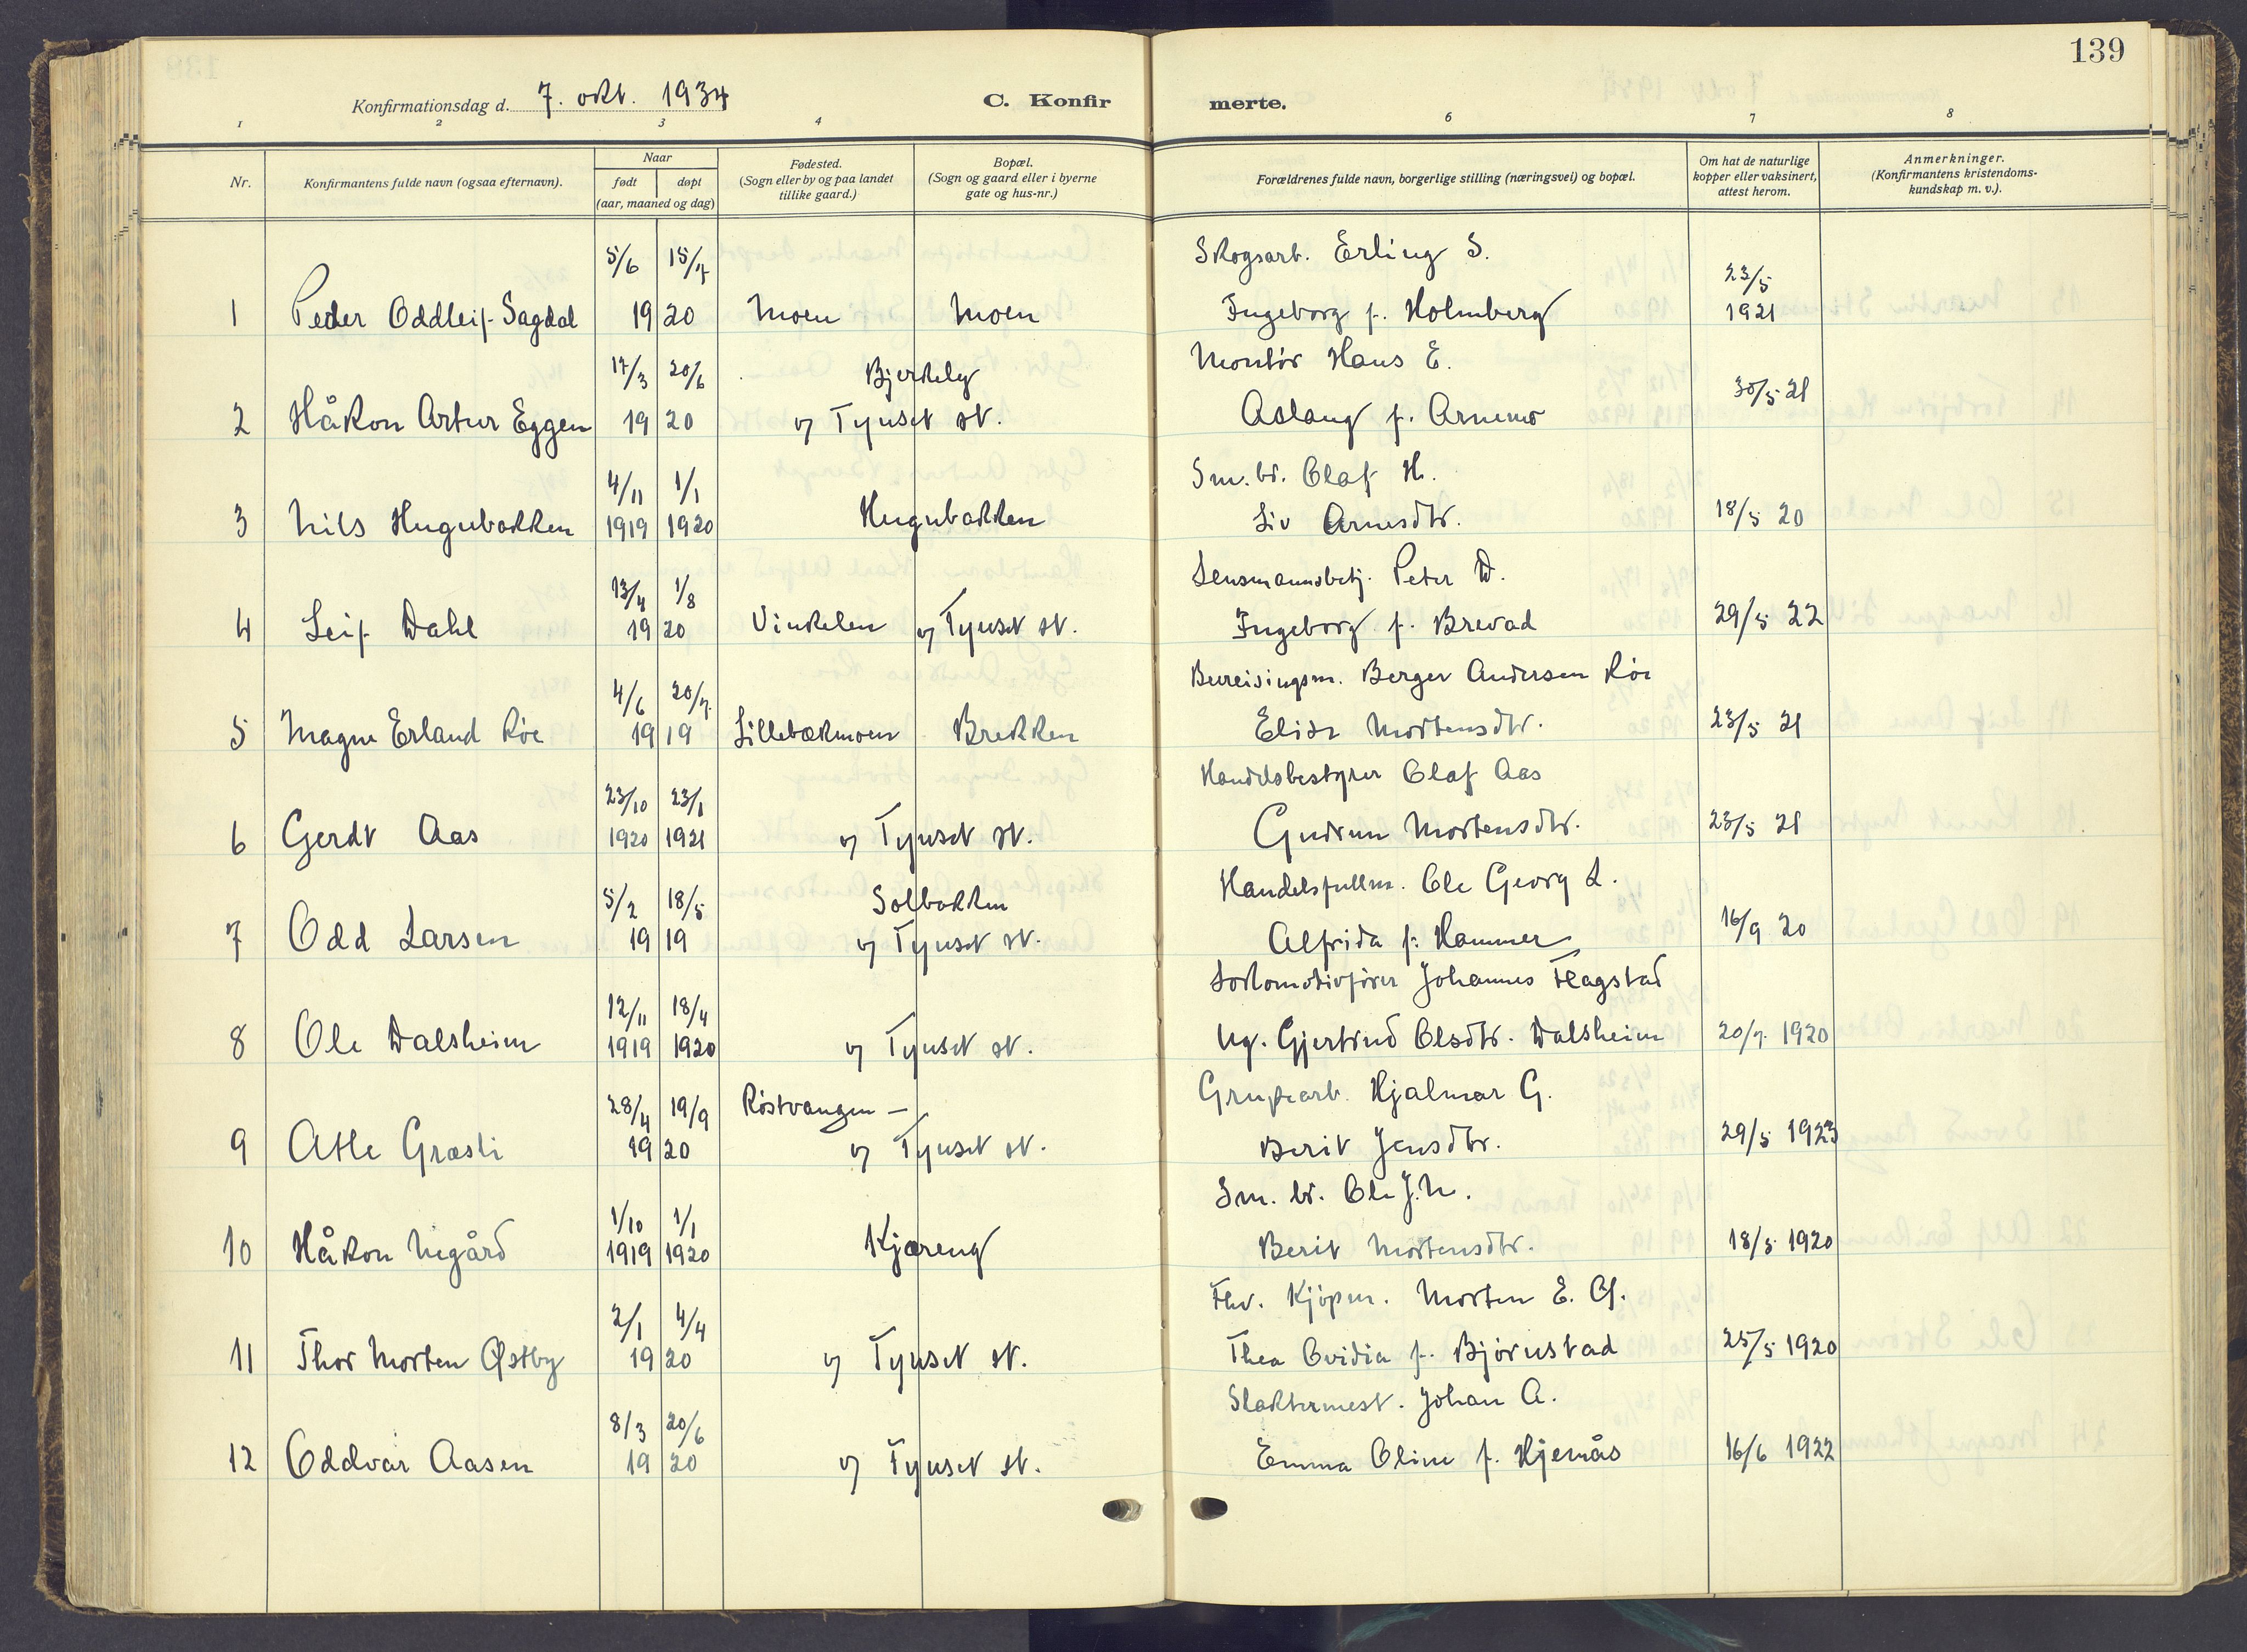 139
Konfirmationsdag d. 7. okt. 1934
C. Konfirmerte.
1 2 3 4 6 7 8
Nr.
Konfirmantens fulde navn (ogsaa efternavn).
Naar
født døpt
(aar, maaned og dag)
Fødested.
(Sogn eller by og paa landet
tillike gaard.)
Bopæl.
(Sogn og gaard eller i byerne
gate og hus-nr.)
Forældrenes fulde navn, borgerlige stilling (næringsvei) og bopæl.
Om hat de naturlige
kopper eller vaksinert,
attest herom.
Anmerkninger.
(Konfirmantens kristendoms-
kundskap m. v.).
5/6 15/7 Skogsarb. Erling S. 23/5
1 Peder Oddleif Sagdal 19 20 Moen Moen Ingeborg f. Holmberg 1921
17/3 20/6 Bjerkely Montør Hans E.
2 Håkon Artur Eggen 19 20 v/ Tynset st. Aslaug f. Arnemo 30/5 21
4/11 1/1 Sm.br. Olaf H.
3 Nils Hugubakken 1919 1920 Hugubakken Liv Arnesdtr. 18/5 20
13/4 1/8 Lensmannsbetj. Peter D.
4 Leif Dahl 19 20 Vinkelen v/ Tynset st. Ingeborg f. Brevad 29/5 22
4/6 20/7 Bureisingsm. Berger Andersen Röe
5 Magne Erland Röe 19 19 Lillebækmoen Brekken Elise Mortensdtr. 23/5 21
23/10 23/1 Handelsbestyrer Olaf Aas
6 Gerdt Aas 1920 1921 v/ Tynset st. Gudrun Mortensdtr. 23/5 21
5/2 18/5 Solbakken Handelsfullm. Ole Georg L.
7 Odd Larsen 19 19 v/ Tynset st. Alfrida f. Hammer 16/9 20
12/11 18/4 Lokomotivfører Johannes Flagstad
8 Ole Dalsheim 1919 1920 v/ Tynset st. Ug. Gjertrud Olsdtr. Dalsheim 20/7 1920
28/4 19/9 Röstvangen – Grubearb. Hjalmar G.
9 Atle Græsli 19 20 v/ Tynset st. Berit Jensdtr. 29/5 1923
1/10 1/1 Sm. br. Ole J. N.
10 Håkon Negård 1919 1920 Kjæreng Berit Mortensdtr. 18/5 1920
2/1 4/4 Fhv. Kjöpm. Morten E. Ø.
11 Thor Morten Østby 19 20 v/ Tynset st. Thea Ovidia f. Björnstad 25/5 1920
8/3 20/6 Slaktermest. Johan A.
12 Oddvar Aasen 19 20 v/ Tynset st. Emma Oline f. Hjernås 16/6 1922